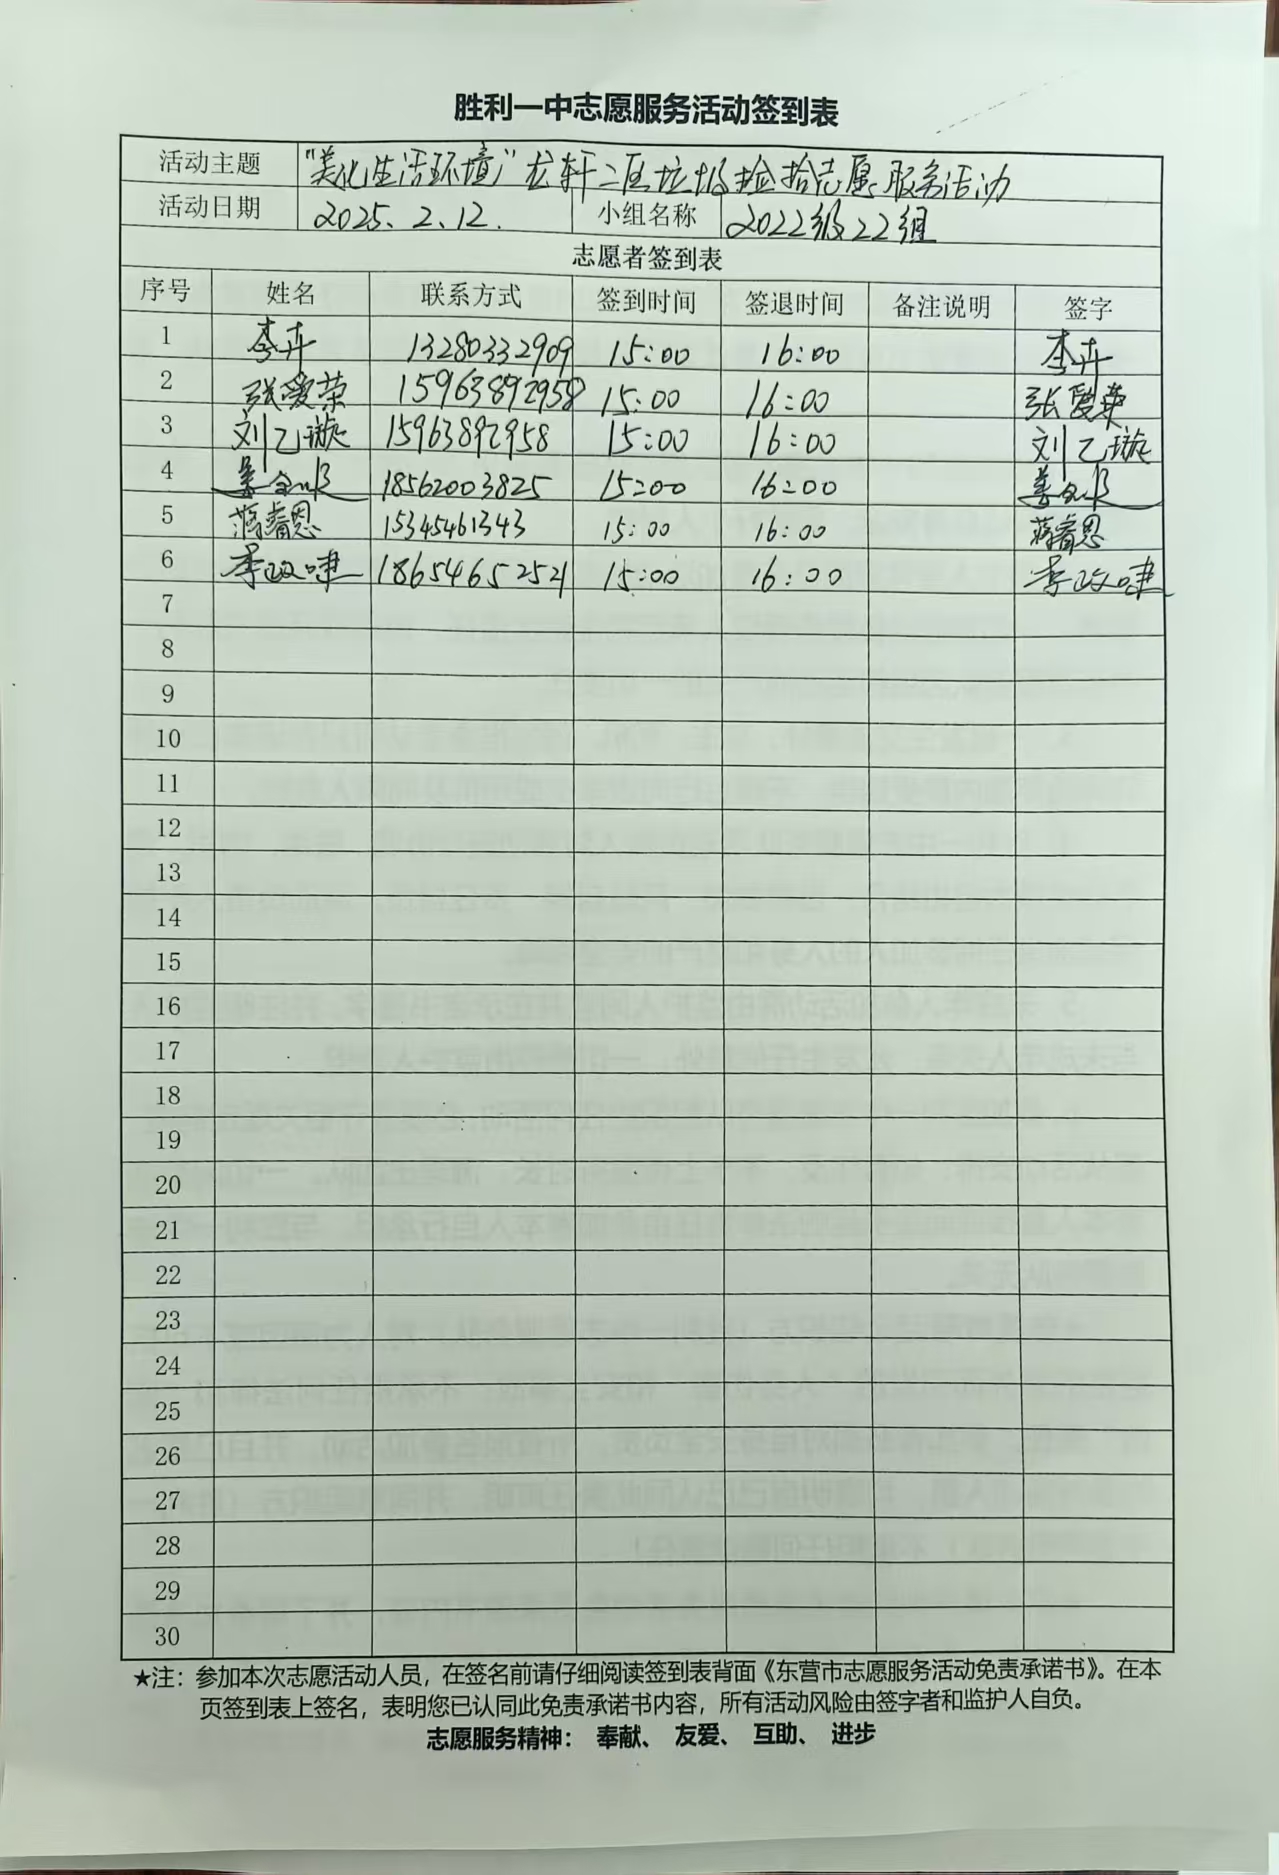 胜利一中志愿服务活动签到表
活动主题 "美化生活环境"龙轩二区垃圾捡拾志愿服务活动
活动日期 2025.2.12. 小组名称 2022级22组
志愿者签到表
序号 姓名 联系方式 签到时间 签退时间 备注说明 签字
1 李卉 13280332909 15:00 16:00 李卉
2 张爱荣 15963892958 15:00 16:00 张爱荣
3 刘乙璇 15963892958 15:00 16:00 刘乙璇
4 姜 18562003825 15:00 16:00 姜
5 蒋睿恩 15345461343 15:00 16:00 蒋睿恩
6 李政 18654652521 15:00 16:00 李政
7
8
9
10
11
12
13
14
15
16
17
18
19
20
21
22
23
24
25
26
27
28
29
30
★注：参加本次志愿活动人员，在签名前请仔细阅读签到表背面《东营市志愿服务活动免责承诺书》。在本
页签到表上签名，表明您已认同此免责承诺书内容，所有活动风险由签字者和监护人自负。
志愿服务精神： 奉献、 友爱、 互助、 进步